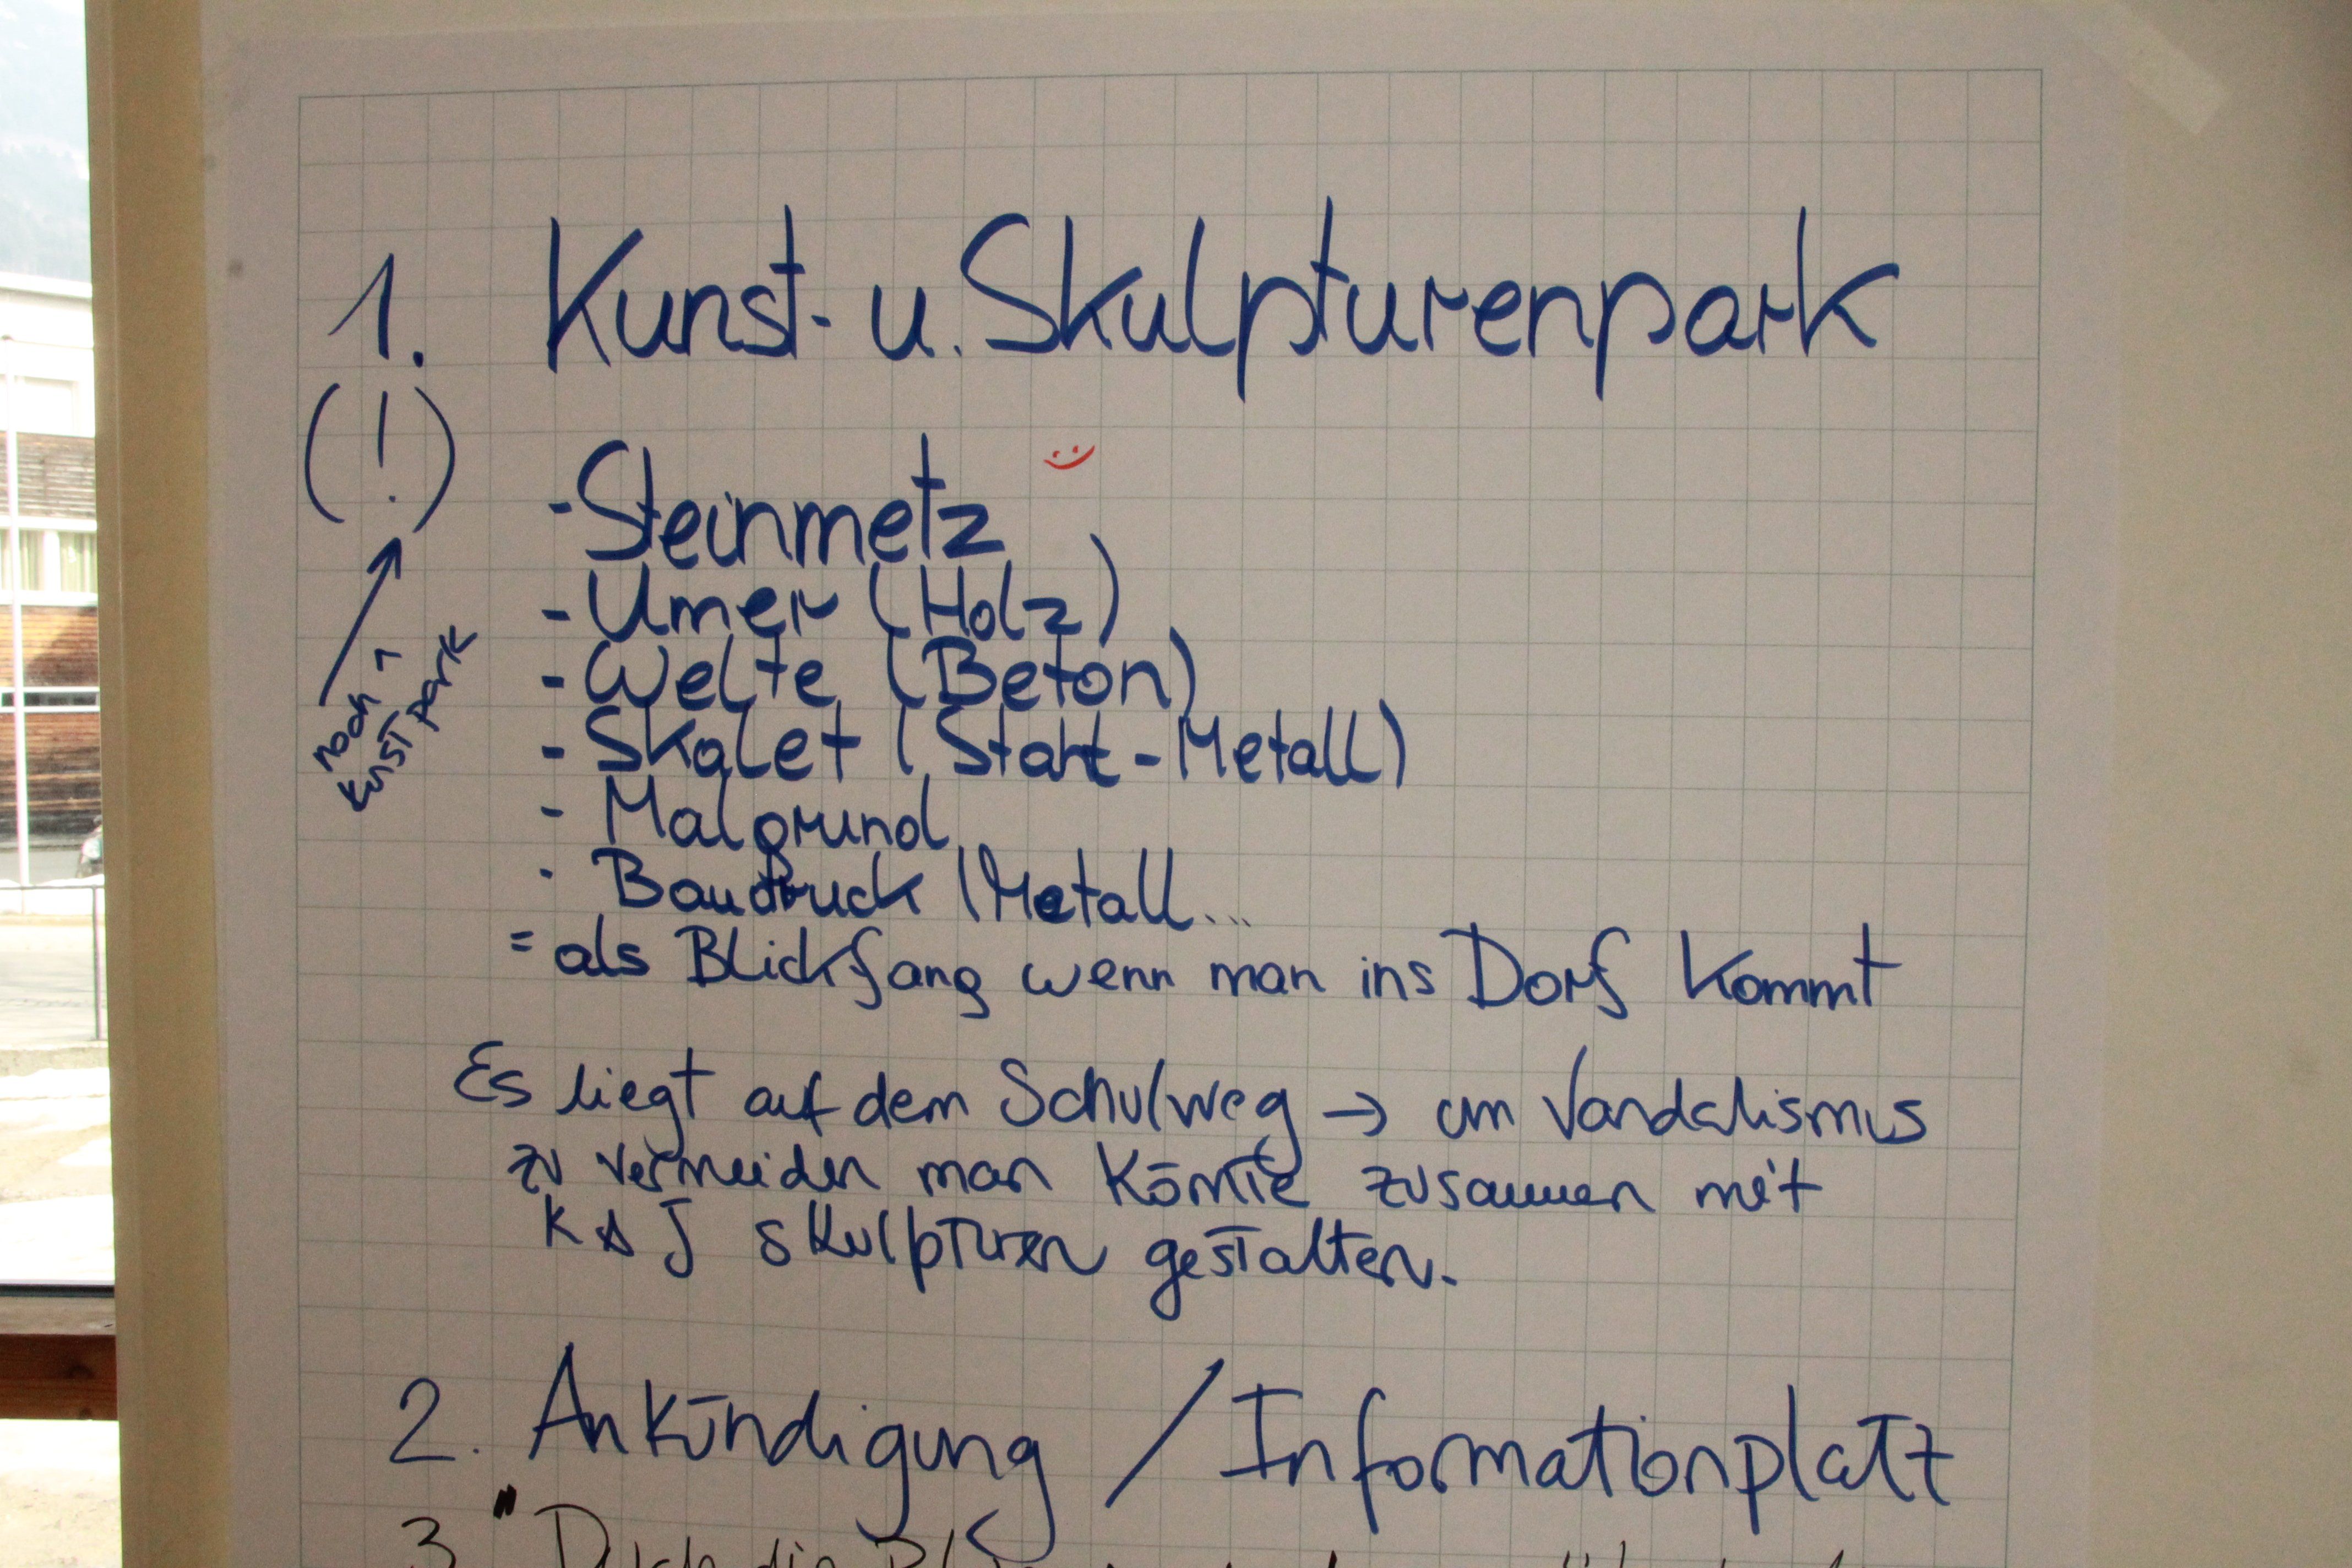 1. Kunst- u. Skulpturenpark
(!)
noch 1
Kunstpark
- Steinmetz
- Umer (Holz)
- Welte (Beton)
- Skalet (Stahl-Metall)
- Malgrund
- Baudruck (Metall...
= als Blickfang wenn man ins Dorf kommt
Es liegt auf dem Schulweg → um Vandalismus
zu vermeiden man könnte zusammen mit
K & J Skulpturen gestalten.
2. Ankündigung / Informationplatz
3. " Durch die